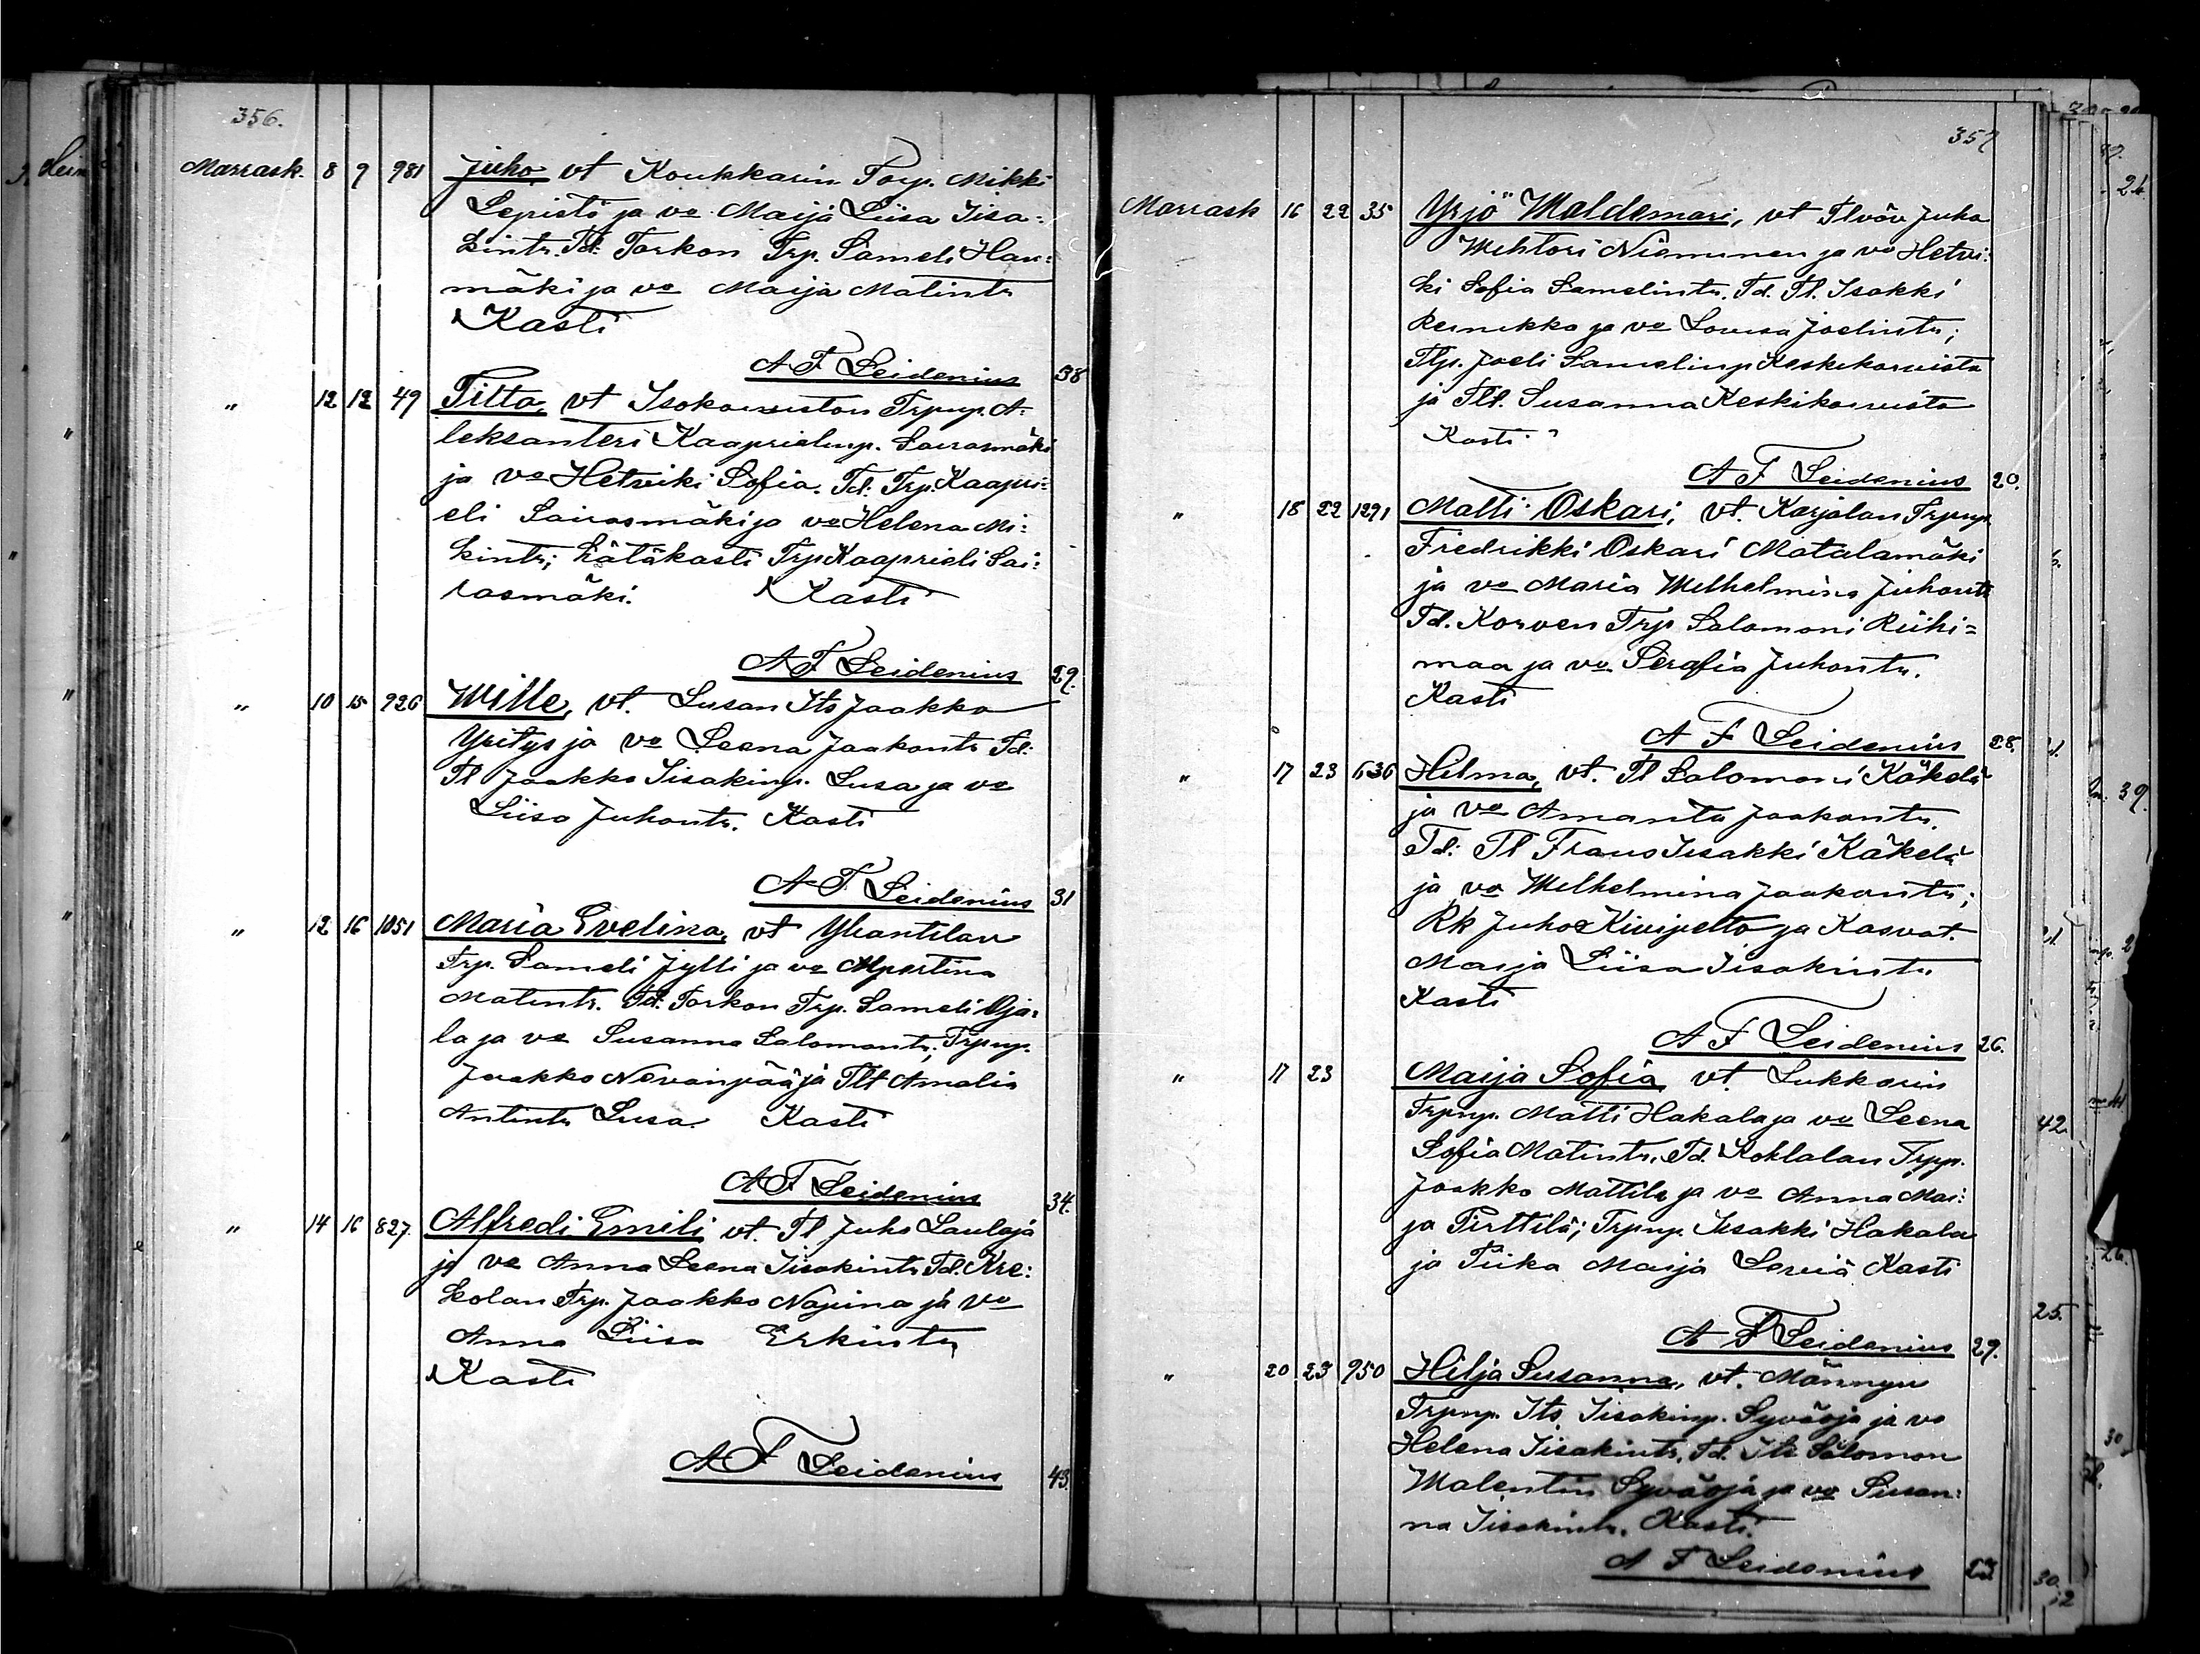 356.
Marrask. 8 9 981 Juho vt Koukkarin Torp. Mikki
Lepistö ja vo Maija Liisa Iisa-
kintr. Td: Torkon Trp. Sameli Han-
mäki ja vo Maija Matintr
Kasti
A F Leidenius 38
" 12 12 49 Tilta, vt Isokoiviston Trpnp. A-
leksanteri Kaaprielinp. Sairasmäki
ja vo Hetviki Sofia. Td: Trp. Kaapri-
eli Sairasmäki ja vo Helena Mi-
kintr; hätäkasti Trp Kaaprieli Sai-
rasmäki. Kasti
A F Leidenius 29.
" 10 15 926 Wille, vt. Lusan Its Jaakko
Yritys ja vo Leena Jaakontr Td:
Tl Jaakko Iisakinp. Lusa ja vo
Liisa Juhontr. Kasti
A F Leidenius 31
" 12 16 1051 Maria Evelina, vt Yliantilan
Trp. Sameli Jylli ja vo Alpertina
Matintr. Td. Torkon Trp. Sameli Oja-
la ja vo Susanna Salomontr; Trpnp.
Jaakko Nevanpää ja Tlt Amalia
Antintr Lusa. Kasti
A F Leidenius 34.
" 14 16 827. Alfredi Emili vt. Tl Juho Laulaja
ja vo Anna Leena Iisakintr Td. Kre-
kolan Trp. Jaakko Napina ja vo
Anna Liisa Erkintr
Kasti
A F Leidenius 43.
357
Marrask 16 22 35 Yrjö Waldemari, vt Tlvöv Juho
Wihtori Nieminen ja vo Hetvi-
ki Sofia Samelintr. Td. Tl. Isakki
Reinikka ja vo Lovisa Joelintr;
Tlp. Joeli Samelinp Keskikoivisto
ja Tlt. Susanna Keskikoivisto
Kasti
A F Leidenius 20.
" 18 22 1291 Matti Oskari, vt. Karjalan Trpnp
Fredrikki Oskari Matalamäki
ja vo Maria Wilhelmina Juhontr
Td. Korven Trp Salomoni Riihi-
maa ja vo Serafia Juhontr.
Kasti
A F Leidenius 28.
" 17 23 636 Hilma, vt. Tl Salomoni Käkelä
ja vo Amanta Jaakontr.
Td: Tl Frans Iisakki Käkelä
ja vo Wilhelmina Jaakontr;
Rk Juho Kivipelto ja Kasvat.
Maija Liisa Iisakintr
Kasti
A F Leidenius 26.
" 17 23 Maija Sofia, vt. Lukkarin
Trpnp. Matti Hakala ja vo Leena
Sofia Matintr. Td. Kohlalan Trpp.
Jaakko Mattila ja vo Anna Mai-
ja Pirttilä; Trpnp. Iisakki Hakala
ja Piika Maija Laviä Kasti
A F Leidenius 29.
" 20 23 950 Hilja Susanna, vt. Männyn
Trpnp. Its. Iisakinp. Syväoja ja vo
Helena Iisakintr. Td. Its Salomon
Malentin Syväoja ja vo Susan-
na Iisakintr. Kasti.
A F Leidenius